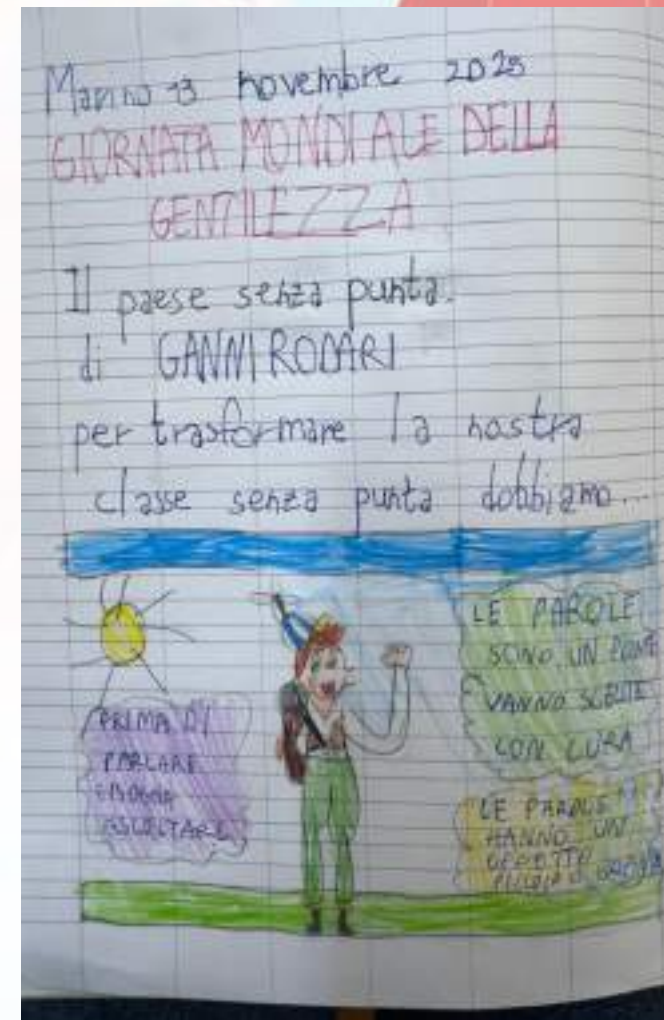 Manno 13 novembre 2025
GIORNATA MONDIALE DELLA
GENTILEZZA
Il paese senza punta.
di GANNI RODARI
per trasformare la nostra
classe senza punta dobbiamo...
PRIMA DI
PARLARE
BISOGNA
ASCOLTARE
LE PAROLE
SONO UN PONTE
VANNO SCELTE
CON CURA
LE PAROLE
HANNO UN
EFFETTO